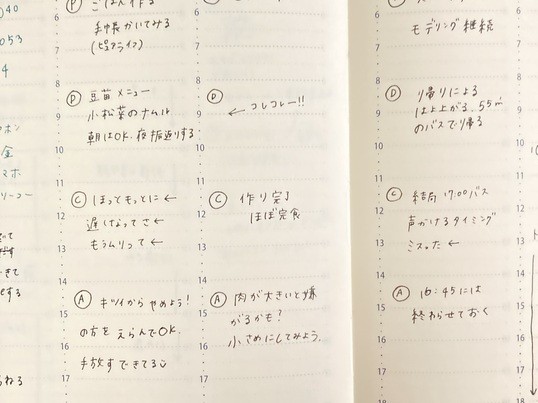 40
053
4
ホン
金
マホ
6
7
8
9
10
11
12
13
14
15
16
17
Ⓟ ごはん作る
手帳かいてみる
(ピュアライフ)
Ⓓ 豆苗メニュー
小松菜のナムル
朝はOK. 夜振返りする
Ⓒ ほっともっとに←
遅くなってさ←
もうムリって←
Ⓐ キツイから やめよう!
の方を えらんでOK.
手放すできてる
6
7
8
9
10
11
12
13
14
15
16
17
Ⓓ
← コレコレー!!
Ⓒ 作り完了
ほぼ完食
Ⓐ 肉が大きいと嫌
がるかも?
小さめにしてみよう.
6
7
8
9
10
11
12
13
14
15
16
17
モデリング継続
Ⓓ り帰りによる
55
のバスで帰る
Ⓒ 結局 17:00バス
声かけるタイミング
ミスった ←
Ⓐ 16:45には
終わらせておく